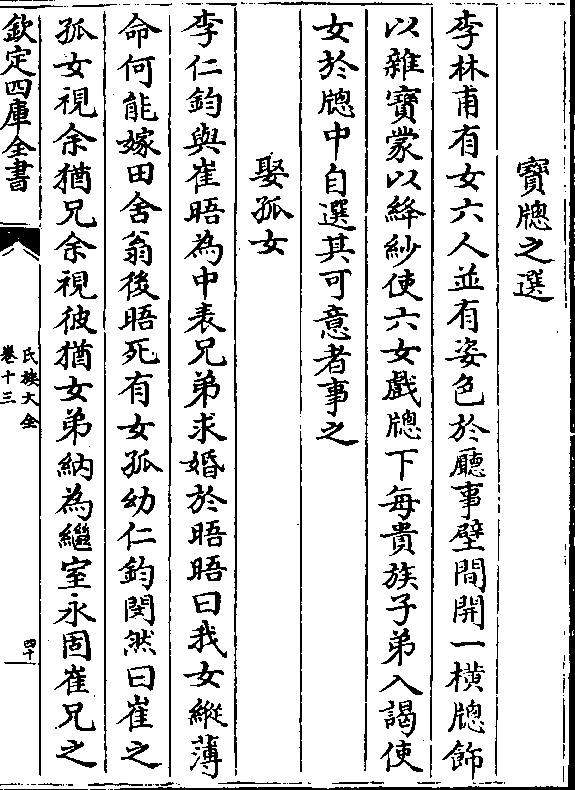 寶牕之選
李林甫有女六人並有姿色於廳事壁間開一橫牕飾
以雜寶蒙以絳紗使六女戲牕下每貴族子弟入謁使
女於牕中自選其可意者事之
娶孤女
李仁鈞與崔晤為中表兄弟求婚於晤晤曰我女縱薄
命何能嫁田舍翁後晤死有女孤幼仁鈞閔然曰崔之
孤女視余猶兄余視彼猶女弟納為繼室永固崔兄之
欽定四庫全書
氏族大全
卷十三
四十